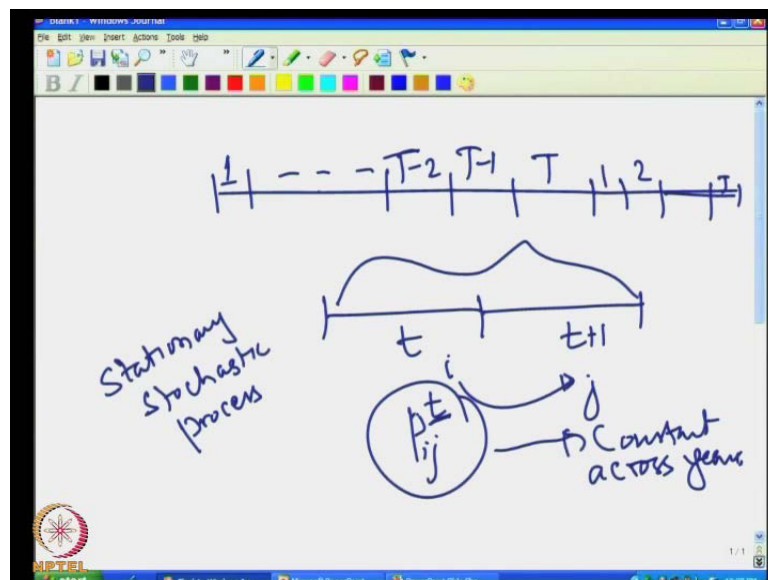 Blank1 - Windows Journal
File Edit View Insert Actions Tools Help
B I
1 - - - T-2 T-1 T 1 2 T
t t+1
Stationary
stochastic
process
i
j
p^t_ij
Constant
across years
1/1
NPTEL
start